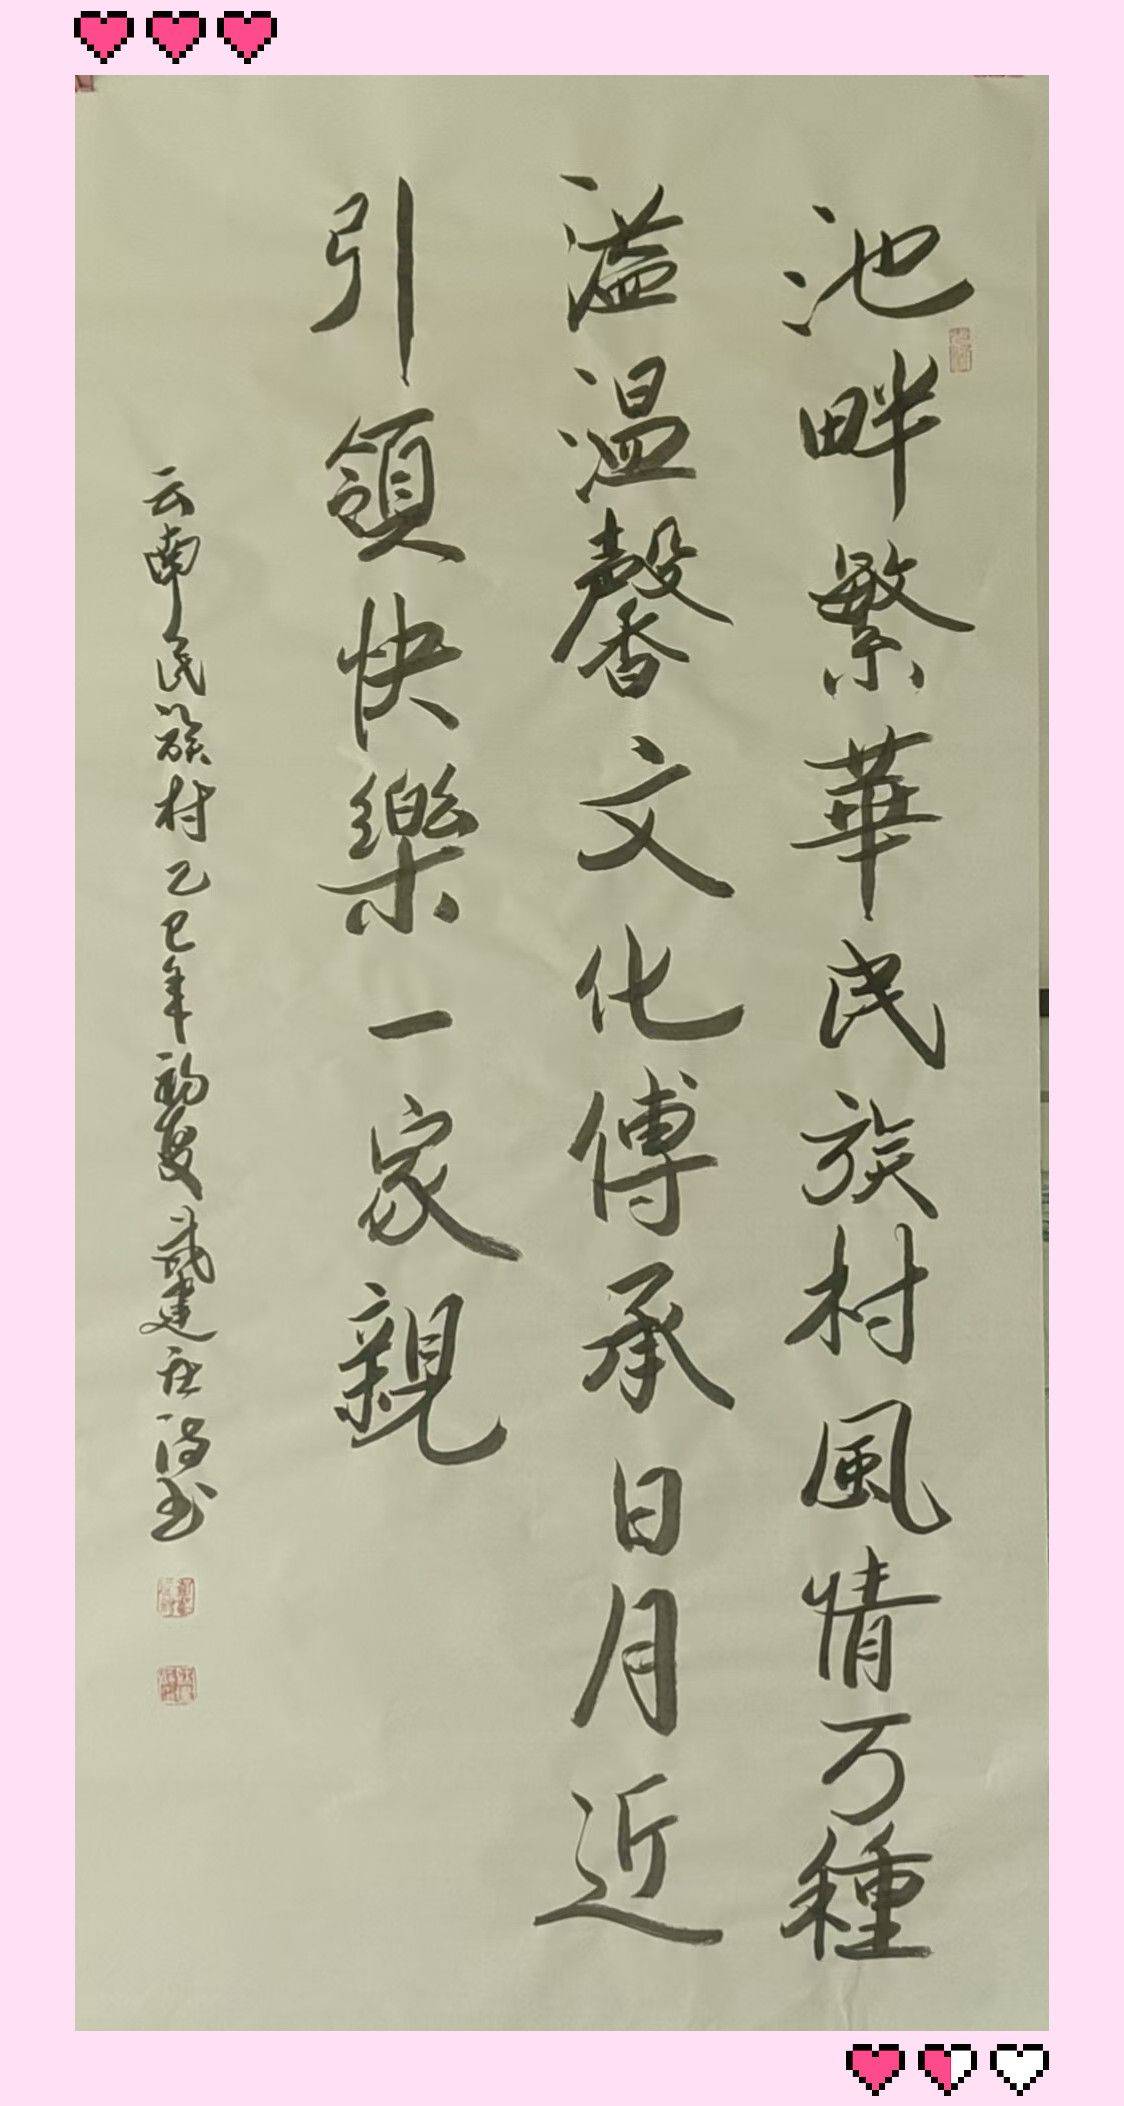 池畔繁華民族村風情万種
溢温馨文化傳承日月近
引領快樂一家親
云南民族村乙巳年初夏武建社詩书